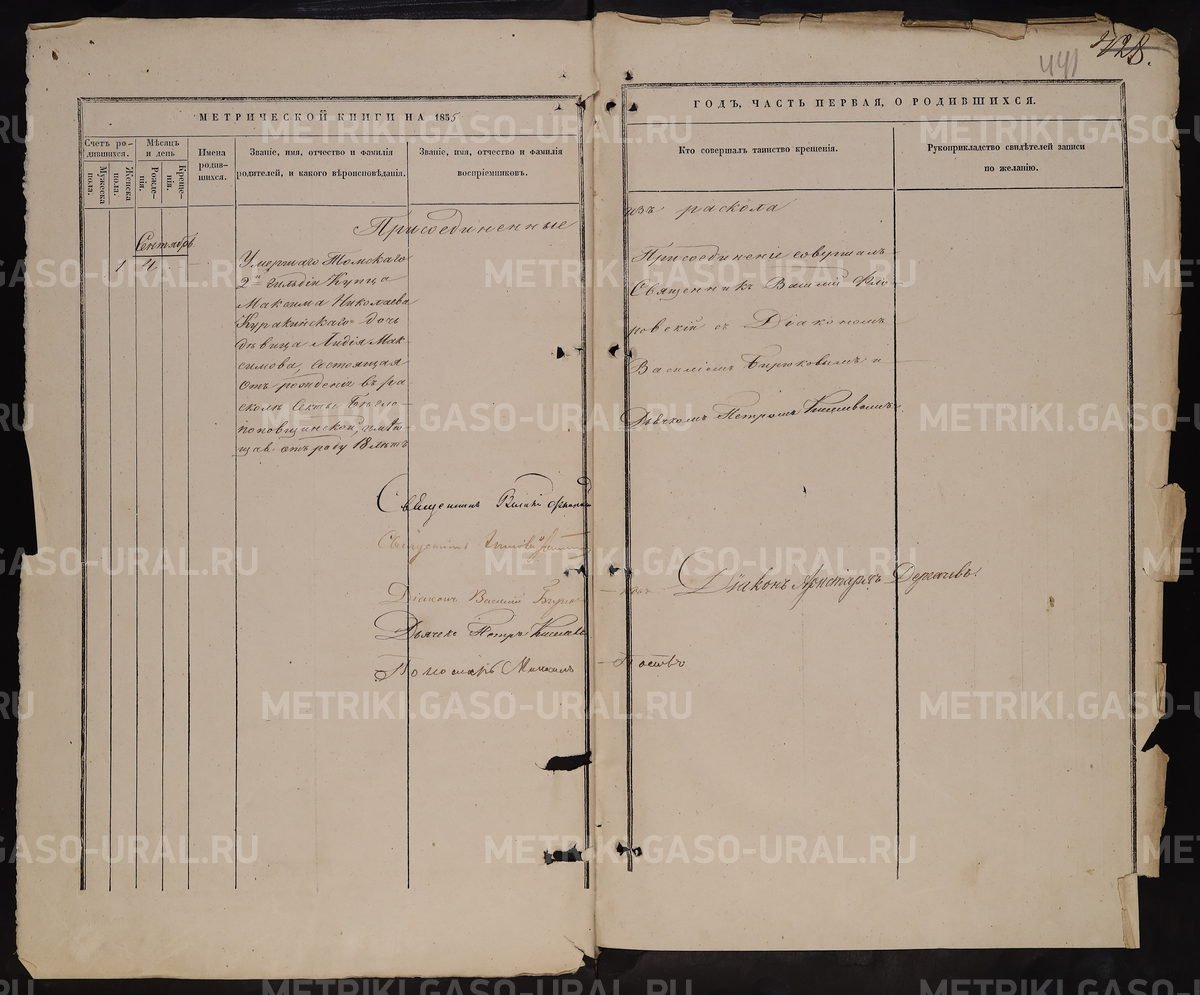 441 428.
МЕТРИЧЕСКОЙ КНИГИ НА 1855
ГОДЪ, ЧАСТЬ ПЕРВАЯ, О РОДИВШИХСЯ.
Счетъ ро-
дившихся.
Мужеска
пола.
Женска
пола.
Мѣсяцъ
и день
Рожде-
нія.
Креще-
нія.
Имена
родив-
шихся.
Званіе, имя, отчество и фамилія
родителей, и какого вѣроисповѣданія.
Званіе, имя, отчество и фамилія
воспріемниковъ.
Кто совершалъ таинство крещенія.
Рукоприкладство свидѣтелей записи
по желанію.
Присоединенные
изъ раскола
Сентябрь
1 4
Умершаго Томскаго
2й гильдіи Купца
Максима Николаева
Куракинскаго дочь
дѣвица Лидія Мак-
симова, состоящая
отъ рожденія въ ра
сколѣ Секты Бѣгло-
поповщинской, имѣю
щая отъ роду 18 лѣтъ
Присоединеніе совершалъ
Священникъ Василій Фло-
ровскій съ Діакономъ
Василіемъ Бирюковымъ и
Дьячкомъ Петромъ Киселевымъ.
Священникъ Василій
Священникъ
Діаконъ Василій Бирю-
ковъ
Діаконъ Аристархъ Дергачевъ.
Дьячекъ Петръ Киселевъ
Пономарь Михаилъ
METRIKI.GASO-URAL.RU